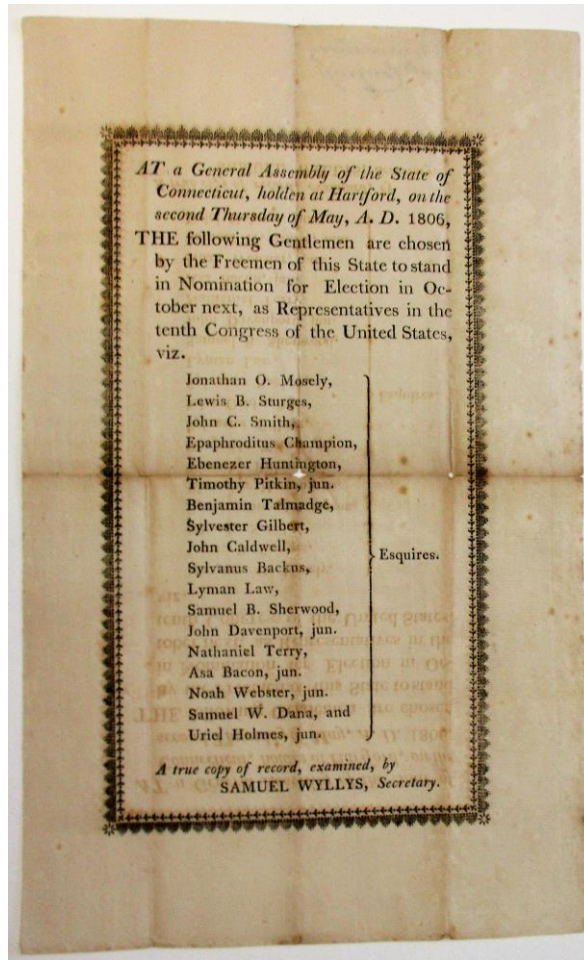 AT a General Assembly of the State of
Connecticut, holden at Hartford, on the
second Thursday of May, A. D. 1806,
THE following Gentlemen are chosen
by the Freemen of this State to stand
in Nomination for Election in Oc-
tober next, as Representatives in the
tenth Congress of the United States,
viz.
Jonathan O. Mosely,
Lewis B. Sturges,
John C. Smith,
Epaphroditus Champion,
Ebenezer Huntington,
Timothy Pitkin, jun.
Benjamin Talmadge,
Sylvester Gilbert,
John Caldwell,
Esquires.
Sylvanus Backus,
Lyman Law,
Samuel B. Sherwood,
John Davenport, jun.
Nathaniel Terry,
Asa Bacon, jun.
Noah Webster, jun.
Samuel W. Dana, and
Uriel Holmes, jun.
A true copy of record, examined, by
SAMUEL WYLLYS, Secretary.